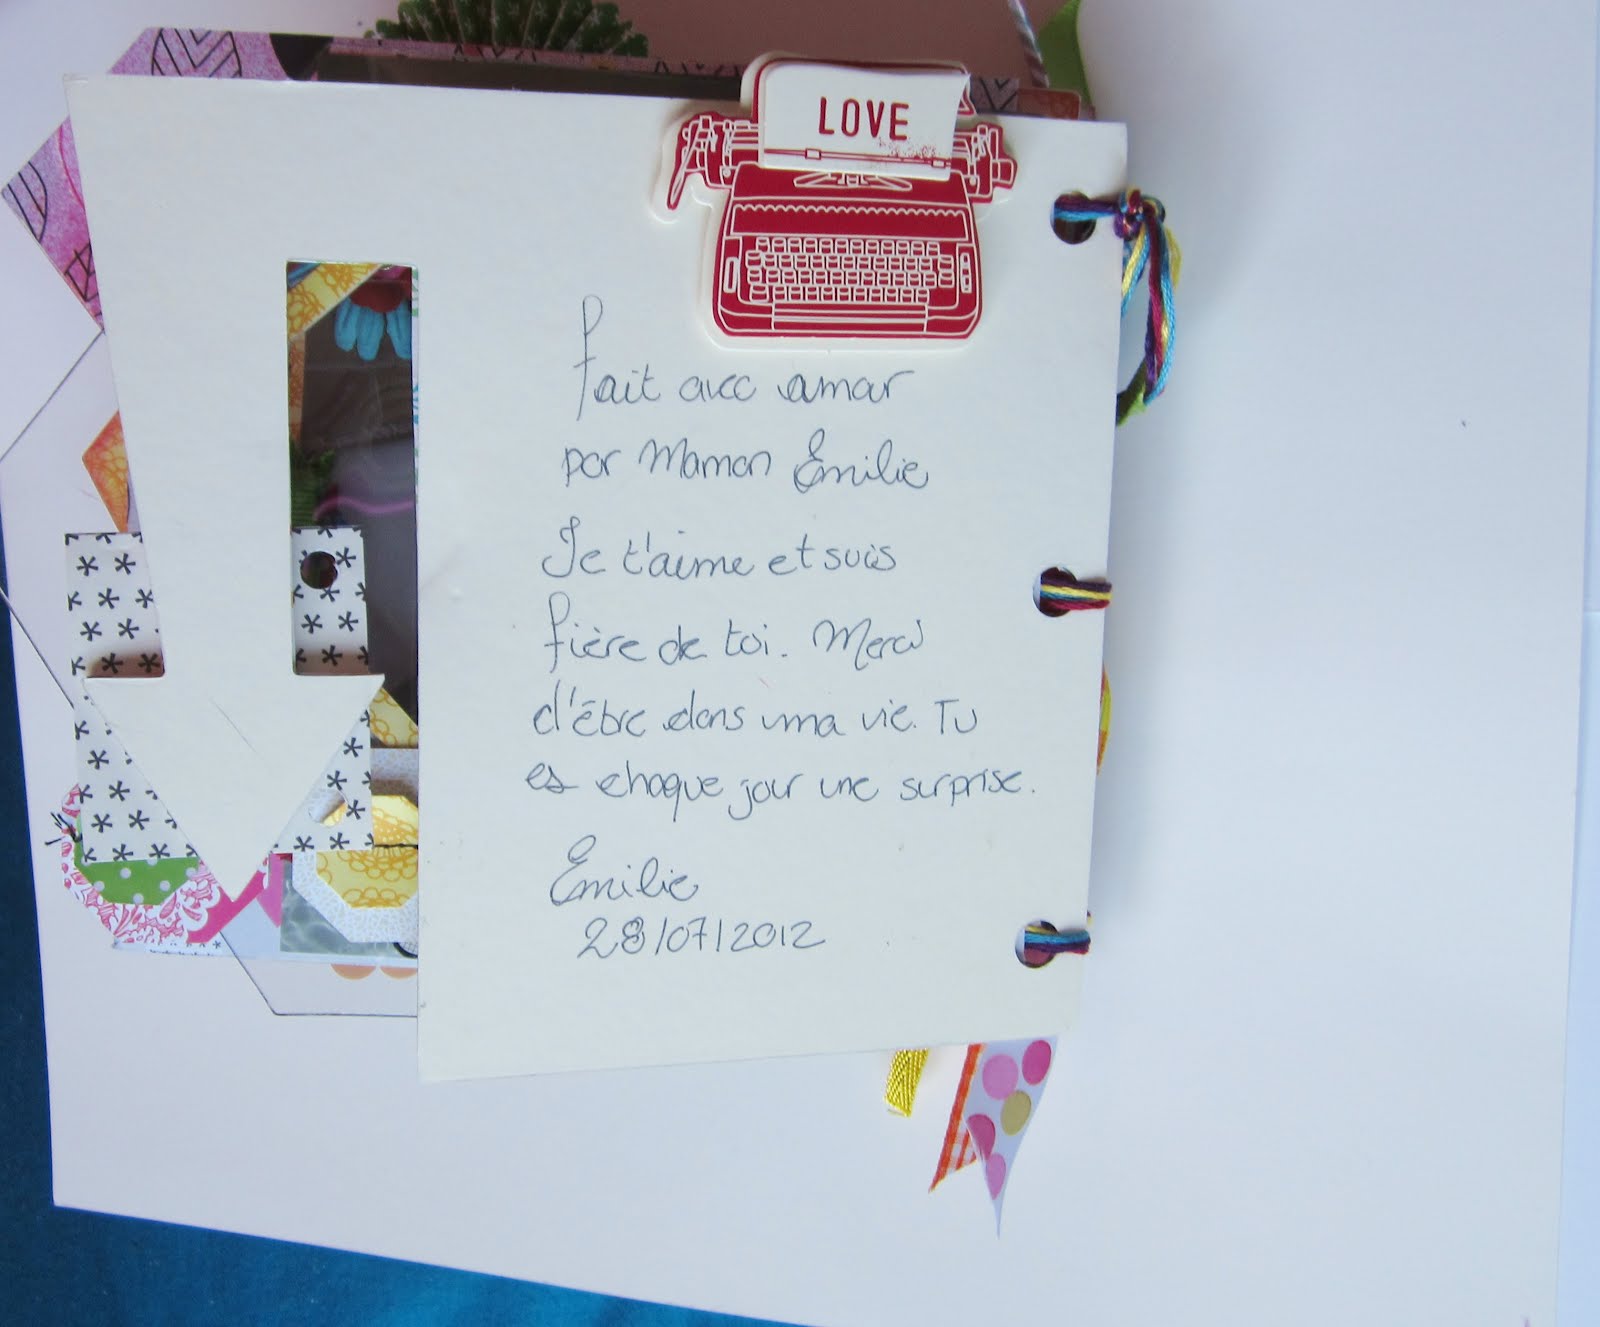 LOVE
Fait avec amour
par Maman Émilie
Je t'aime et suis
fière de toi. Merci
d'être dans ma vie. Tu
es chaque jour une surprise.
Émilie
28/07/2012